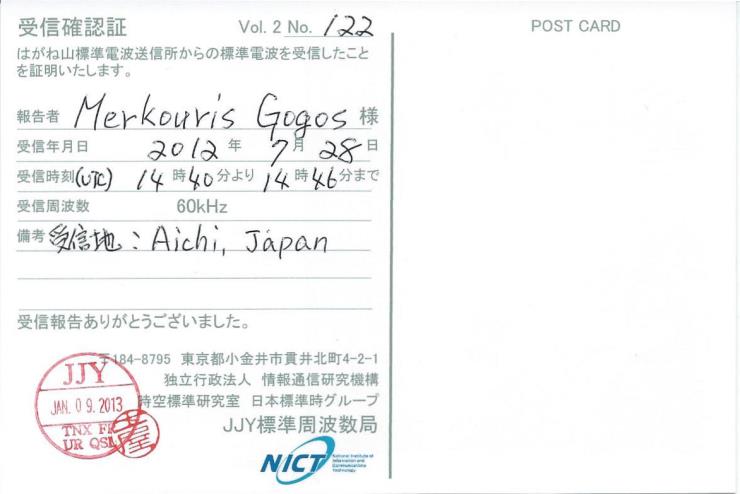 受信確認証 Vol. 2 No. 122
はがね山標準電波送信所からの標準電波を受信したこと
を証明いたします。
報告者 Merkouris Gogos 様
受信年月日 2012 年 7 月 28 日
受信時刻(UTC) 14 時 40 分より 14 時 46 分まで
受信周波数 60kHz
備考 受信地 : Aichi, Japan
受信報告ありがとうございました。
〒184-8795 東京都小金井市貫井北町4-2-1
独立行政法人 情報通信研究機構
時空標準研究室 日本標準時グループ
JJY標準周波数局
JJY
JAN. 09. 2013
TNX FR
UR QSL
NICT
National Institute of
Information and
Communications
Technology
POST CARD